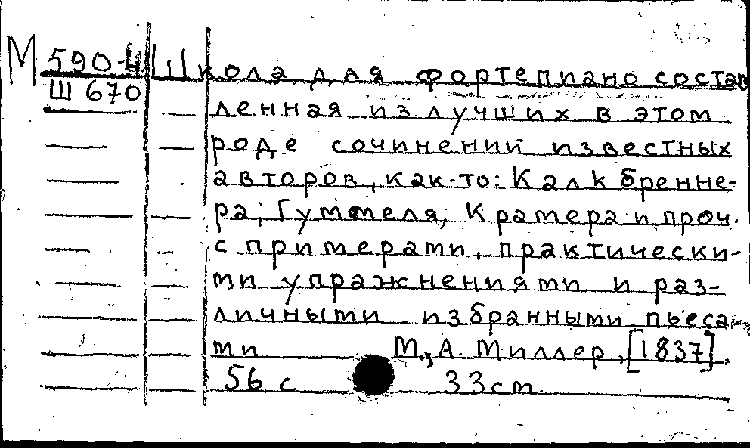 М 590-4 Школа для фортепиано состав
Ш 670
ленная из лучших в этом
роде сочинений известных
авторов, как-то: Калкбренне-
ра, Гуммеля, Крамера и проч.
с примерами, практически-
ми упражнениями и раз-
личными избранными пьеса-
ми М., А. Миллер, [1837].
56 с 33 см